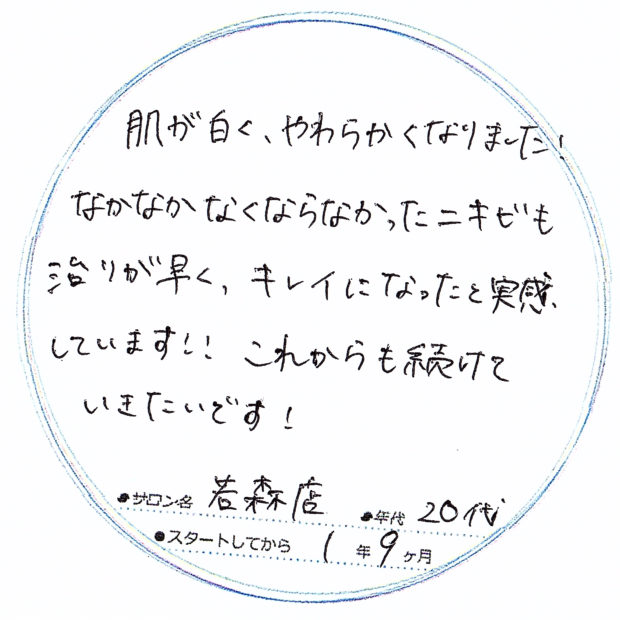 肌が白く、やわらかくなりました!
なかなかなくならなかったニキビも
治りが早く、キレイになったと実感
しています!! これからも続けて
いきたいです!
●サロン名 若森店 ●年代 20代
●スタートしてから 1年9ヶ月